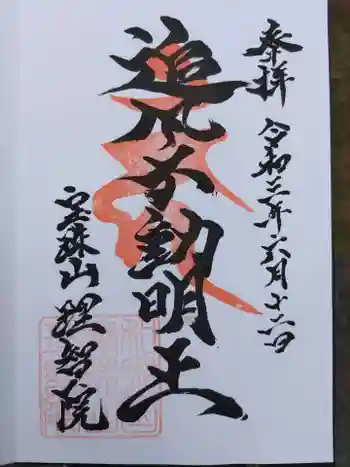 奉拝
令和三年六月十六日
追风不動明王
宝珠山 理智院